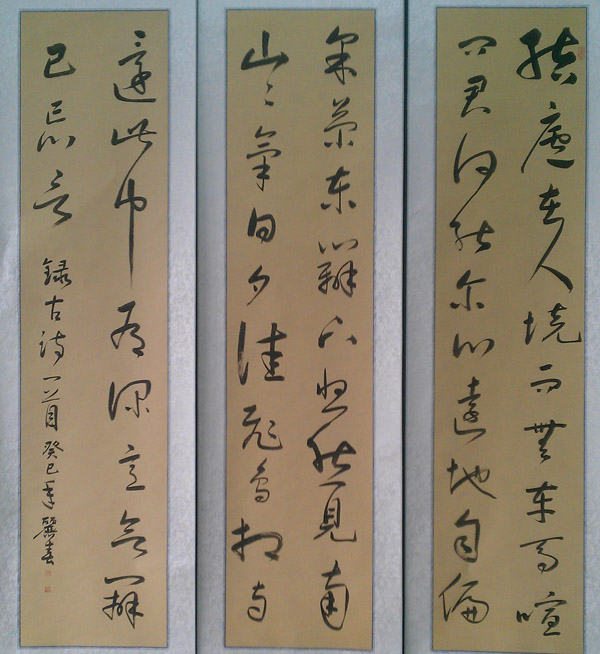 结廬在人境而無车马喧
问君何能尔心遠地自偏
采菊东篱下悠然見南
山〻氣日夕佳飛鸟相与
還此中有深意欲辨
已忘言 録古诗一首 癸巳年 麗春